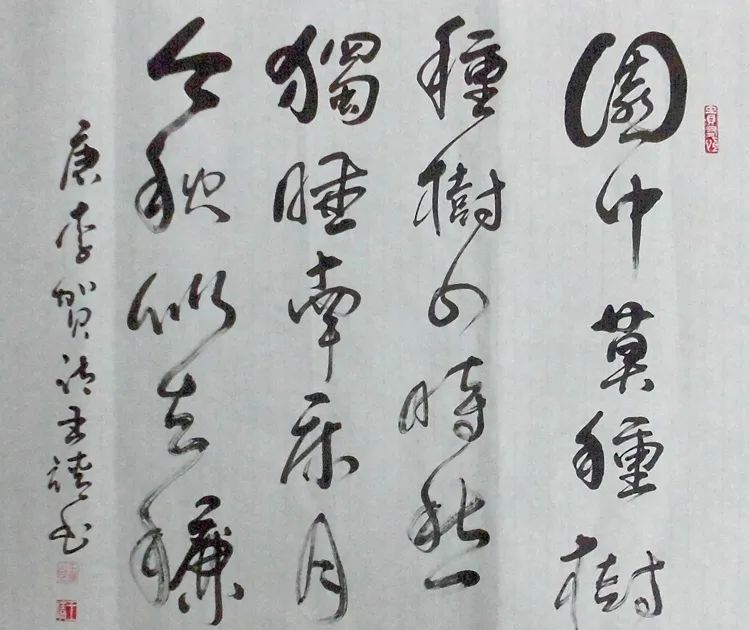 園中莫種樹
種樹四時愁
獨睡南床月
今秋似去穐
唐李賀詩 書